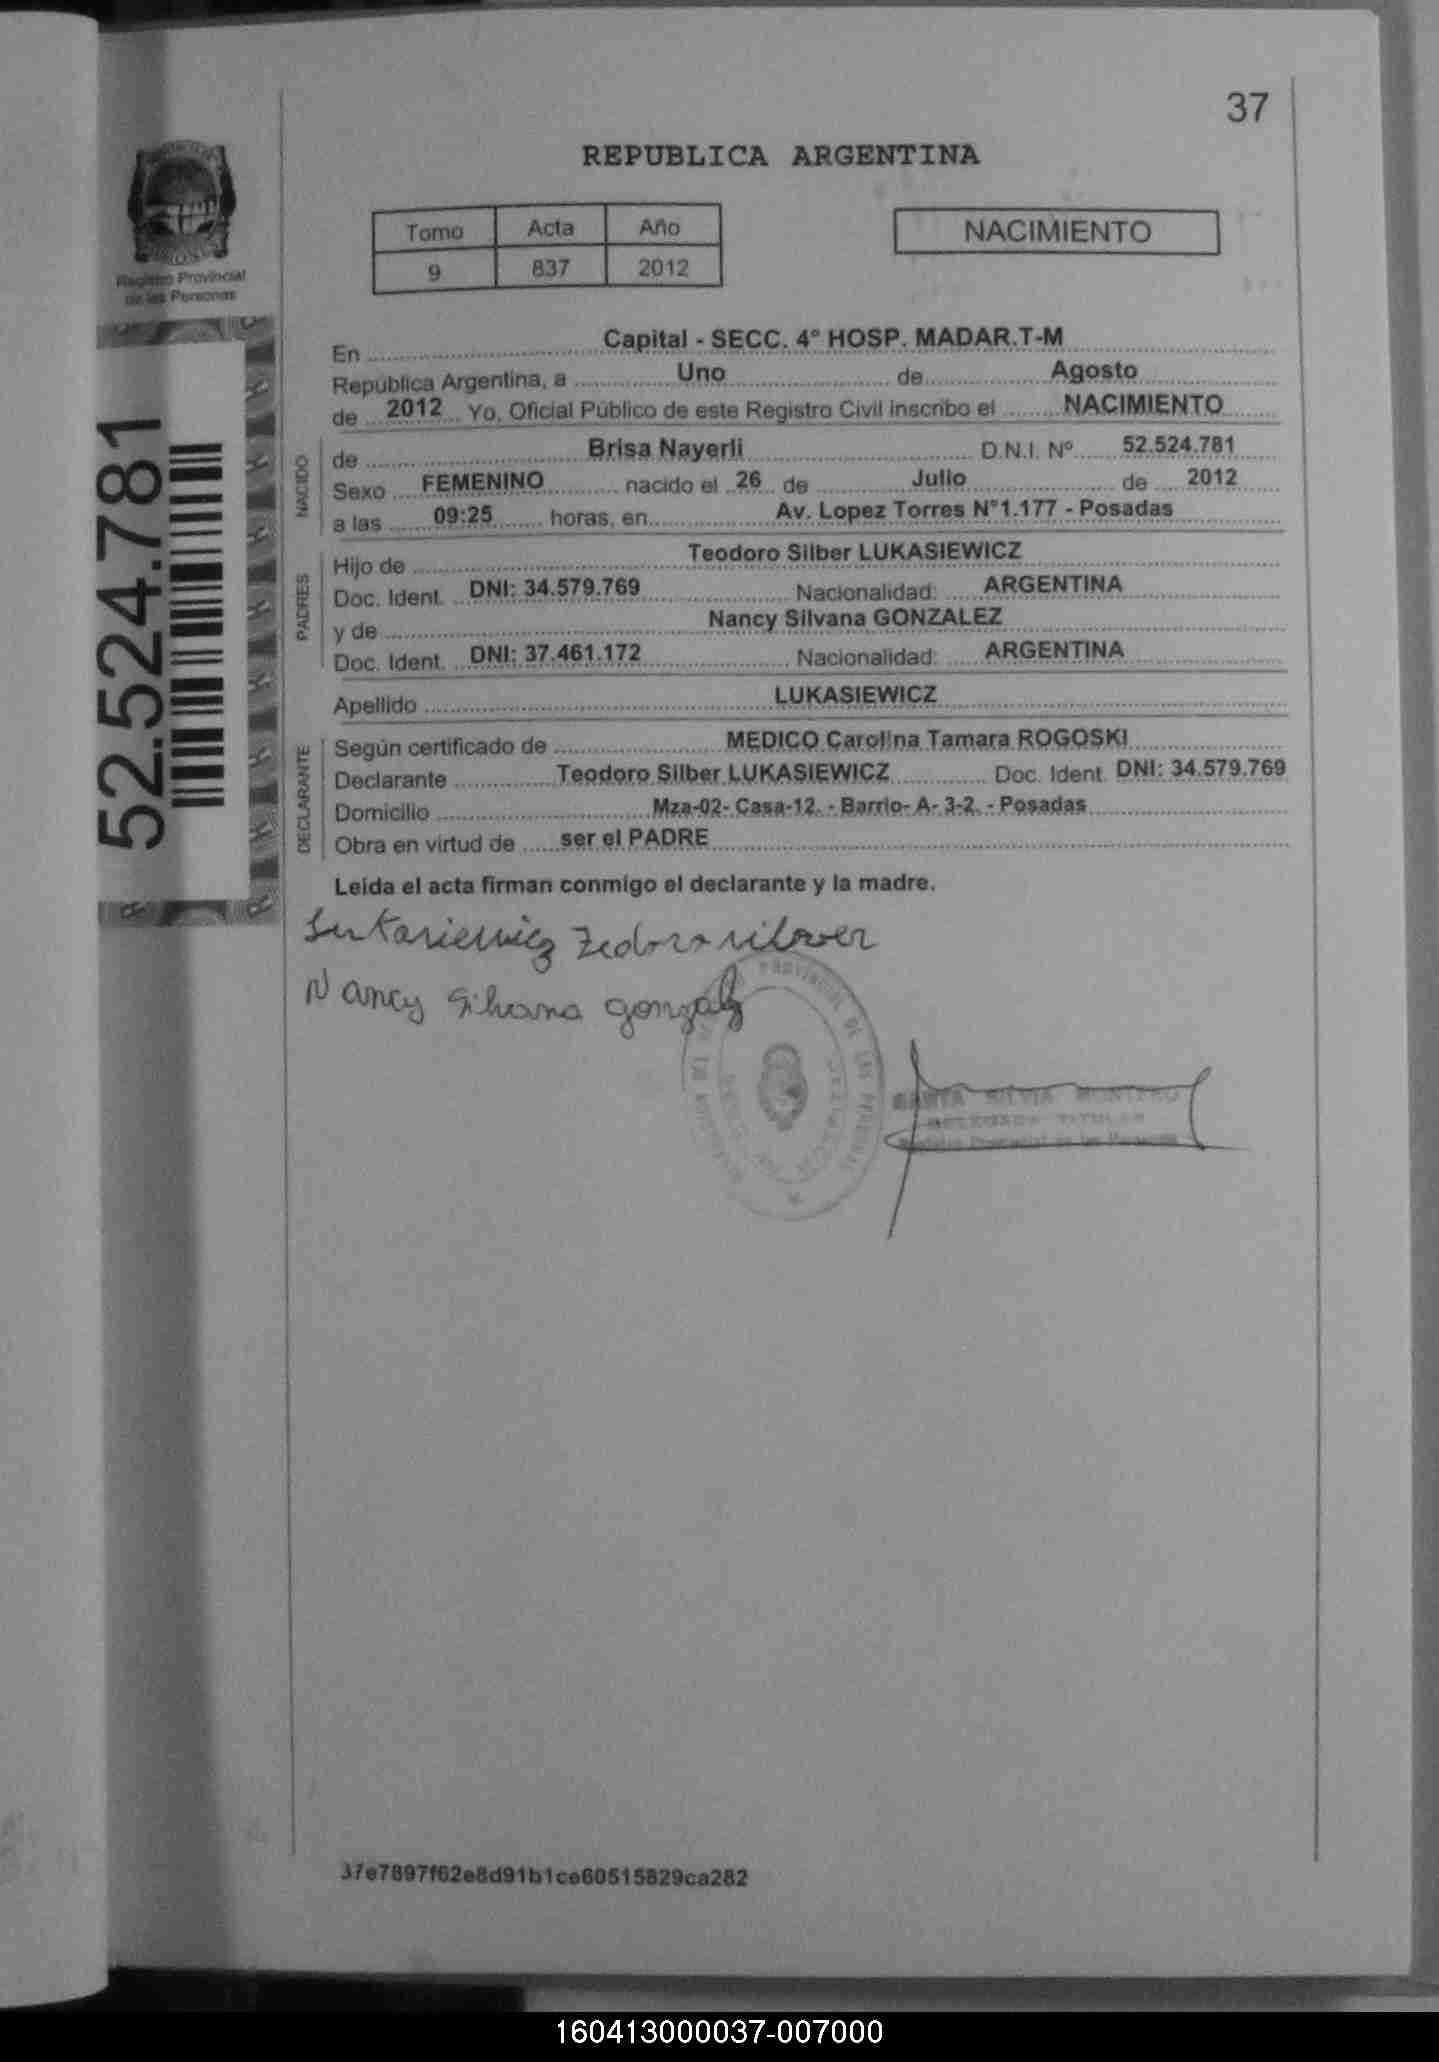 37
REPUBLICA ARGENTINA
Registro Provincial
de las Personas
Tomo Acta Año
9 837 2012
NACIMIENTO
52.524.781
En Capital - SECC. 4° HOSP. MADAR.T-M
República Argentina, a Uno de Agosto
de 2012 Yo, Oficial Público de este Registro Civil inscribo el NACIMIENTO
NACIDO
de Brisa Nayerli D.N.I. Nº 52.524.781
Sexo FEMENINO nacido el 26 de Julio de 2012
a las 09:25 horas, en Av. Lopez Torres N°1.177 - Posadas
PADRES
Hijo de Teodoro Silber LUKASIEWICZ
Doc. Ident. DNI: 34.579.769 Nacionalidad: ARGENTINA
y de Nancy Silvana GONZALEZ
Doc. Ident. DNI: 37.461.172 Nacionalidad: ARGENTINA
Apellido LUKASIEWICZ
DECLARANTE
Según certificado de MEDICO Carolina Tamara ROGOSKI
Declarante Teodoro Silber LUKASIEWICZ Doc. Ident. DNI: 34.579.769
Domicilio Mza-02- Casa-12. - Barrio- A- 3-2. - Posadas
Obra en virtud de ser el PADRE
Leída el acta firman conmigo el declarante y la madre.
Lukasiewicz
Nancy Silvana Gonzalz
PROVINCIAL DE LAS
SILVIA MONTERO
DELEGADA TITULAR
Registro Provincial de las Personas
37e7897f62e8d91b1ce60515829ca282
160413000037-007000